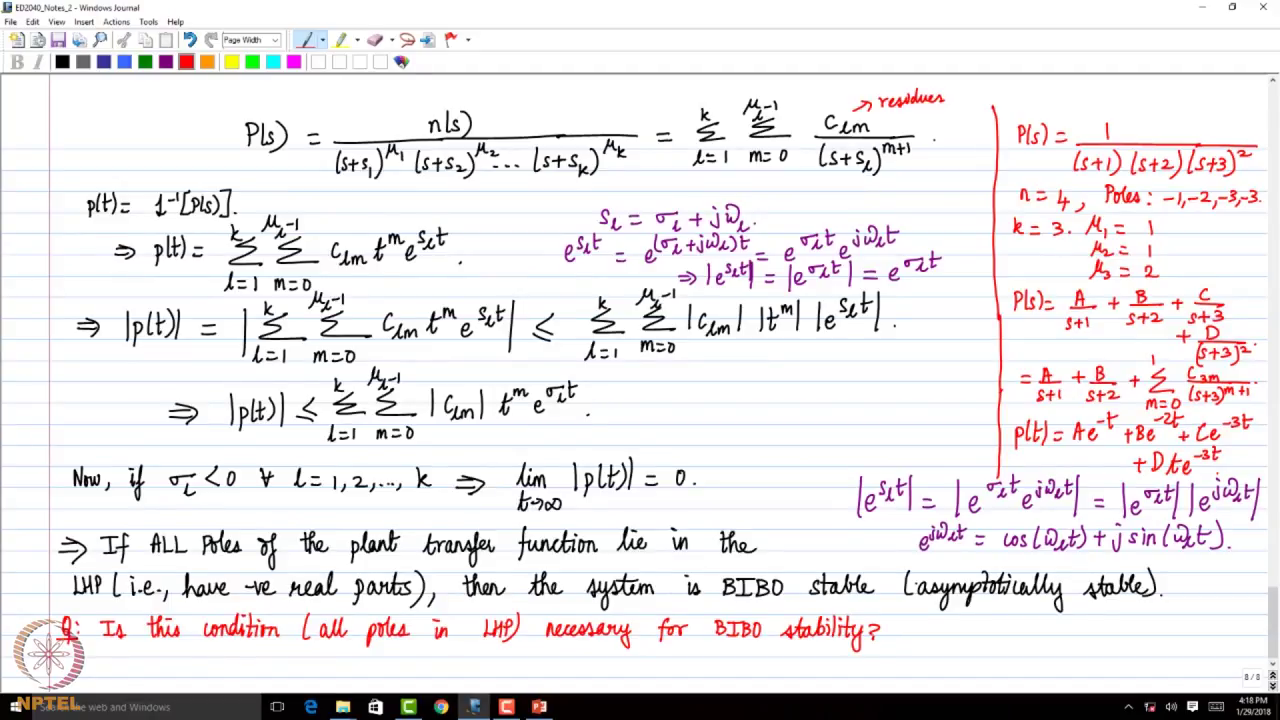 ED2040_Notes_2 - Windows Journal
File Edit View Insert Actions Tools Help
Page Width
P(s) = n(s) / (s+s₁)^μ₁ (s+s₂)^μ₂ ... (s+s_k)^μ_k = Σ_{l=1}^{k} Σ_{m=0}^{μ_l-1} c_lm / (s+s_l)^{m+1} .
→ residues
p(t) = L⁻¹[P(s)].
⇒ p(t) = Σ_{l=1}^{k} Σ_{m=0}^{μ_l-1} c_lm t^m e^{s_l t} .
s_l = σ_l + jω_l.
e^{s_l t} = e^{(σ_l + jω_l)t} = e^{σ_l t} e^{jω_l t}
⇒ |e^{s_l t}| = |e^{σ_l t}| = e^{σ_l t}
⇒ |p(t)| = |Σ_{l=1}^{k} Σ_{m=0}^{μ_l-1} c_lm t^m e^{s_l t}| ≤ Σ_{l=1}^{k} Σ_{m=0}^{μ_l-1} |c_lm| |t^m| |e^{s_l t}| .
⇒ |p(t)| ≤ Σ_{l=1}^{k} Σ_{m=0}^{μ_l-1} |c_lm| t^m e^{σ_l t} .
Now, if σ_l < 0 ∀ l = 1, 2, ..., k ⇒ lim_{t→∞} |p(t)| = 0.
⇒ If ALL Poles of the plant transfer function lie in the
LHP (i.e., have -ve real parts), then the system is BIBO stable (asymptotically stable).
Q: Is this condition (all poles in LHP) necessary for BIBO stability?
P(s) = 1 / (s+1) (s+2) (s+3)²
n = 4, Poles: -1, -2, -3, -3.
k = 3. μ₁ = 1
μ₂ = 1
μ₃ = 2
P(s) = A/(s+1) + B/(s+2) + C/(s+3)
+ D/(s+3)² .
= A/(s+1) + B/(s+2) + Σ_{m=0}^{1} C_3m/(s+3)^{m+1} .
p(t) = Ae^{-t} + Be^{-2t} + Ce^{-3t}
+ Dte^{-3t}
|e^{s_l t}| = |e^{σ_l t} e^{jω_l t}| = |e^{σ_l t}| |e^{jω_l t}|
e^{jω_l t} = cos(ω_l t) + j sin(ω_l t).
8 / 8
NPTEL
Search the web and Windows
4:18 PM
1/29/2018